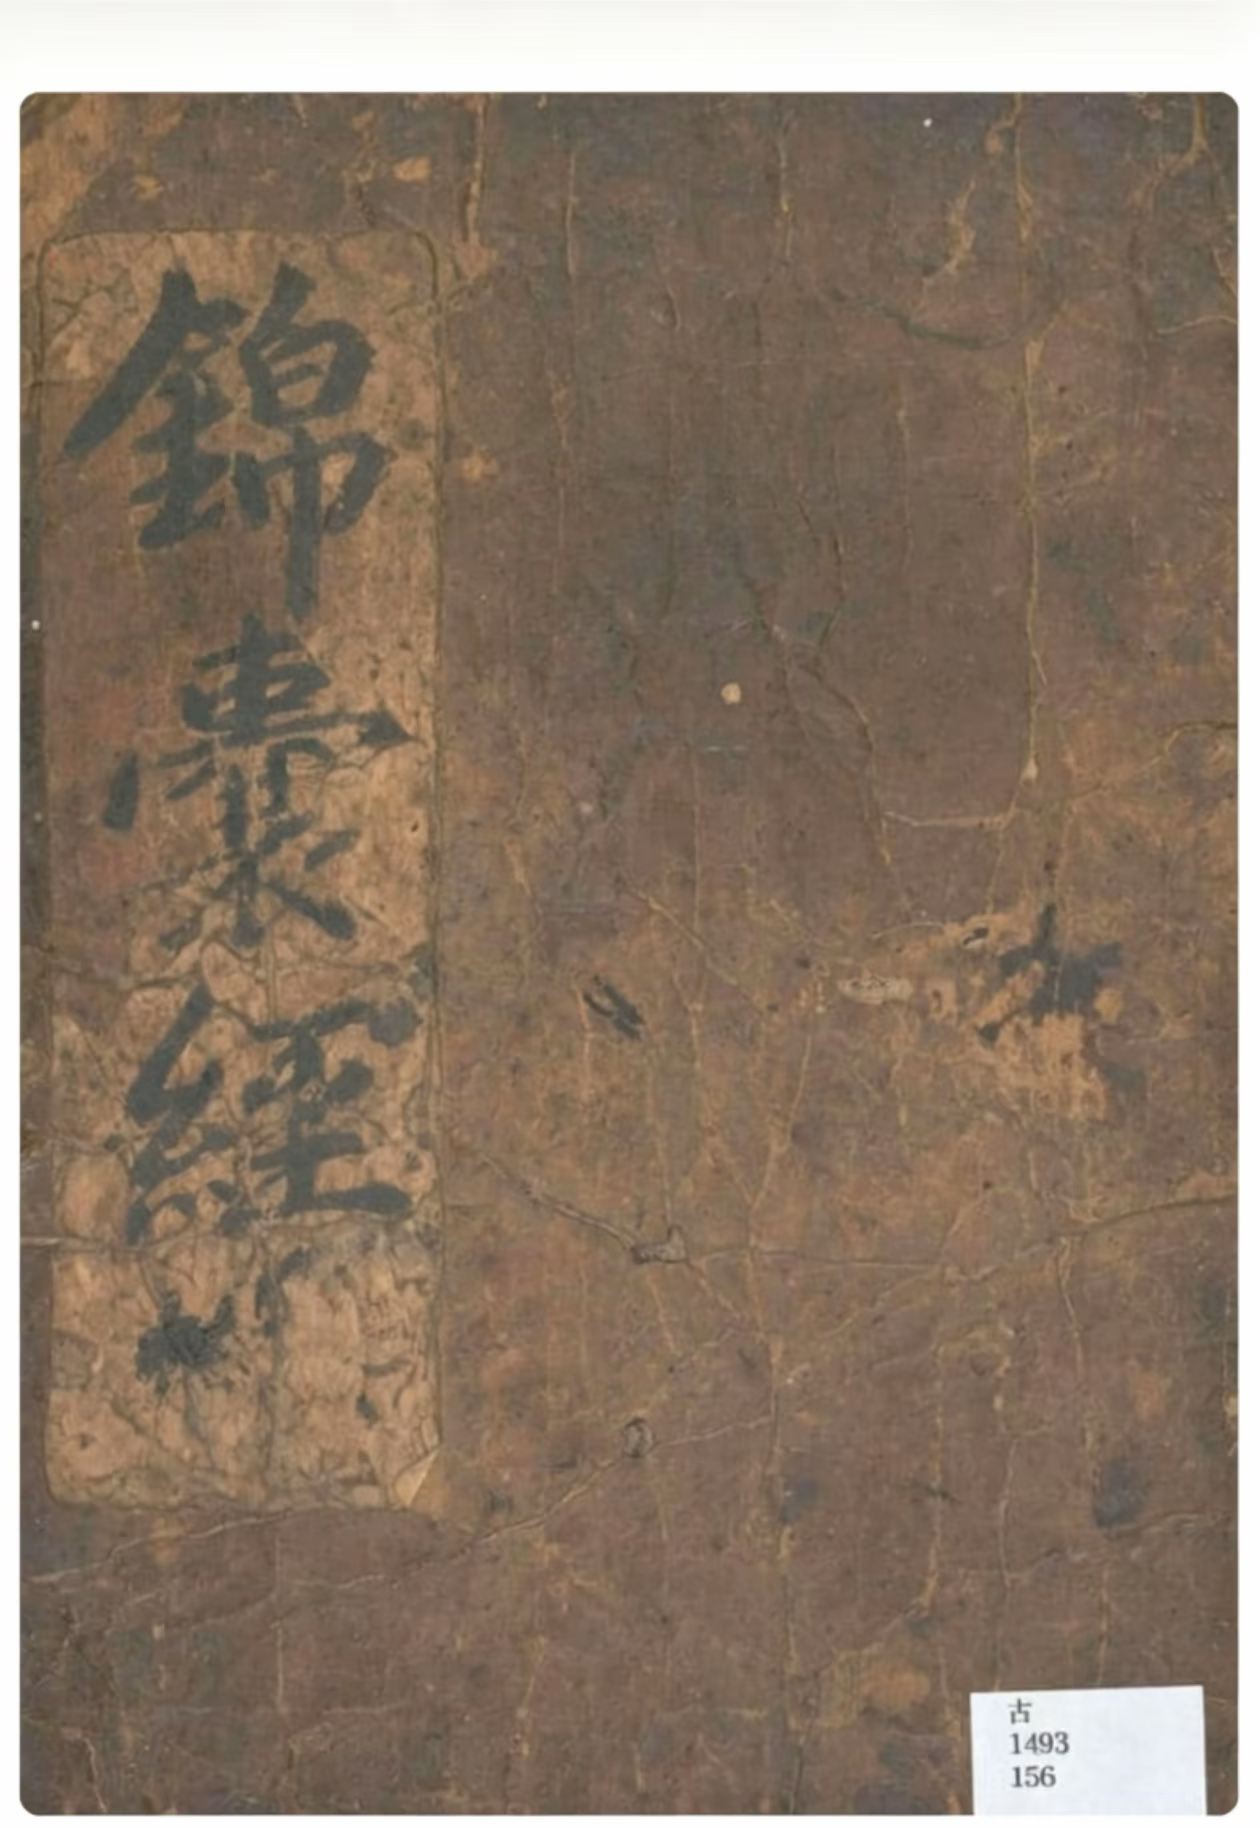 錦囊經
古
1493
156